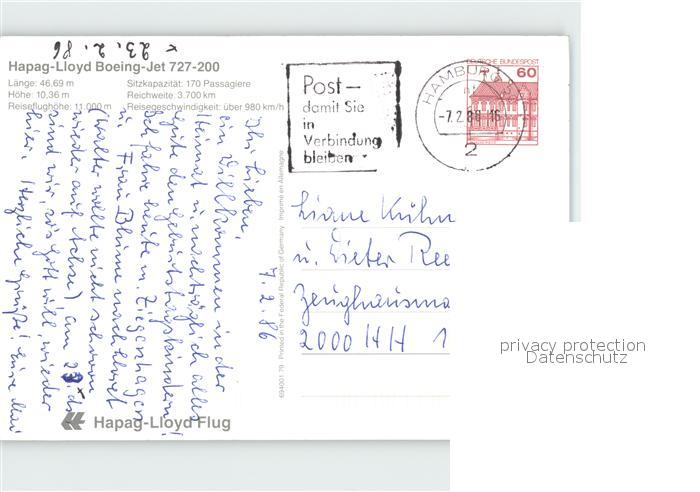 x 23.2.86
Hapag-Lloyd Boeing-Jet 727-200
Länge: 46,69 m Sitzkapazität: 170 Passagiere
Höhe: 10,36 m Reichweite: 3.700 km
Reiseflughöhe: 11.000 m Reisegeschwindigkeit: über 980 km/h
7.2.86
Ihr Lieben,
ein Willkommen in der
Heimat u. nachträglich alles
Gute den Geburtstagskindern!
Ich fahre heute m. Ziegenhagen
u. Frau Blume nach
(Walter wollte nicht schon
wieder auf Achse) am 23. ds
sind wir, so Gott will, wieder
hier. Herzliche Grüße! Eure
Hapag-Lloyd Flug
694001 79 Printed in the Federal Republic of Germany Imprimé en Allemagne
Post –
damit Sie
in
Verbindung
bleiben
HAMBURG
-7.2.86-16
2
DEUTSCHE BUNDESPOST
60
Liane Kühn
u. Dieter Ree
Zeughausma
2000 HH 1
privacy protection
Datenschutz